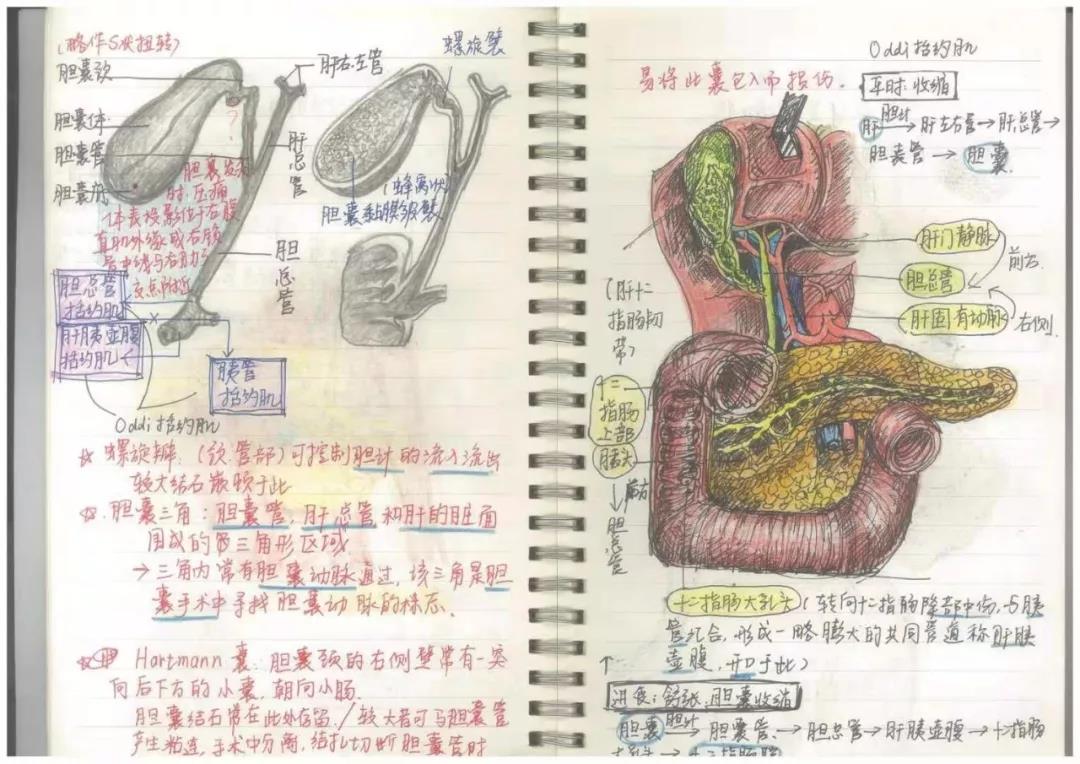 (略作S状扭转)
胆囊颈
胆囊体
胆囊管
胆囊底
肝右左管
肝总管
胆总管
螺旋襞
(蜂窝状)
胆囊黏膜皱襞
胆囊发炎
时,压痛
体表投影位于右腹
直肌外缘或右锁
骨中线与右肋弓
交点附近
胆总管
括约肌
肝胰壶腹
括约肌
胰管
括约肌
Oddi括约肌
☆ 螺旋瓣.(颈.管部)可控制胆汁的流入流出
较大结石嵌顿于此
☆. 胆囊三角:胆囊管,肝总管和肝的脏面
围成的 三角形区域
→三角内常有胆囊动脉通过,该三角是胆
囊手术中寻找胆囊动脉的标志.
☆ Hartmann囊:胆囊颈的右侧壁常有一突
向后下方的小囊,朝向小肠.
胆囊结石常在此处存留./较大者可与胆囊管
产生粘连,手术中分离,结扎切断胆囊管时
易将此囊包入而损伤.
Oddi括约肌
平时:收缩
肝 胆汁→肝左右管→肝总管→
胆囊管→胆囊.
肝门静脉
前方.
胆总管
肝固有动脉
右侧.
(肝十二
指肠韧
带)
十二
指肠
上部
胰头
前方
胆总管
十二指肠大乳头(转向十二指肠降部中份,与胰
管汇合,形成一略膨大的共同管道称肝胰
壶腹,开口于此)
↑
进食:舒张.胆囊收缩
胆囊 胆汁→胆囊管.→胆总管→肝胰壶腹→十二指肠
大乳头→十二指肠腔